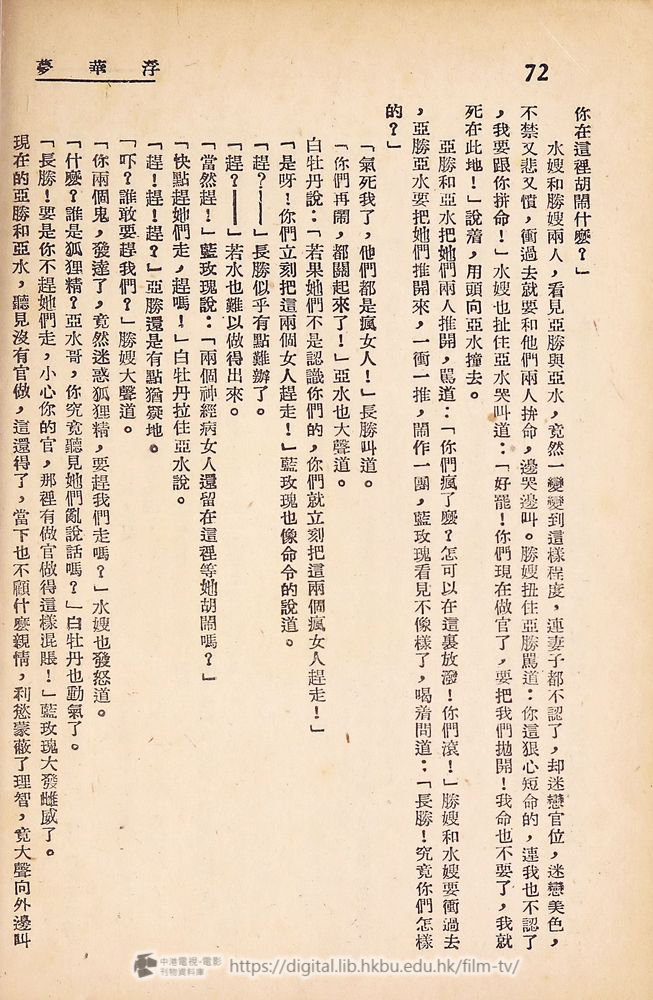 浮華夢
72
你在這裡胡鬧什麼？」
水嫂和勝嫂兩人，看見亞勝與亞水，竟然一變變到這樣程度，連妻子都不認了，却迷戀官位，迷戀美色，
不禁又悲又憤，衝過去就要和他們兩人拚命，邊哭邊叫。勝嫂扭住亞勝罵道：你這狠心短命的，連我也不認了
，我要跟你拼命！」水嫂也扯住亞水哭叫道：「好罷！你們現在做官了，要把我們拋開！我命也不要了，我就
死在此地！」說着，用頭向亞水撞去。
亞勝和亞水把她們兩人推開，罵道：「你們瘋了麼？怎可以在這裏放潑！你們滾！」勝嫂和水嫂要衝過去
，亞勝亞水要把她們推開來，一衝一推，鬧作一團，藍玫瑰看見不像樣了，喝着問道：「長勝！究竟你們怎樣
的？」
「氣死我了，他們都是瘋女人！」長勝叫道。
「你們再鬧，都關起來了！」亞水也大聲道。
白牡丹說：「若果她們不是認識你們的，你們就立刻把這兩個瘋女人趕走！」
「是呀！你們立刻把這兩個女人趕走！」藍玫瑰也像命令的說道。
「趕？——」長勝似乎有點難辦了。
「趕？——」若水也難以做得出來。
「當然趕！」藍玫瑰說：「兩個神經病女人還留在這裡等她胡鬧嗎？」
「快點趕她們走，趕嗎！」白牡丹拉住亞水說。
「趕！趕！趕？」亞勝還是有點猶疑地。
「吓？誰敢要趕我們？」勝嫂大聲道。
「你兩個鬼，發達了，竟然迷惑狐狸精，要趕我們走嗎？」水嫂也發怒道。
「什麼？誰是狐狸精？亞水哥，你究竟聽見她們亂說話嗎？」白牡丹也動氣了。
「長勝！要是你不趕她們走，小心你的官，那裡有做官做得這樣混賬！」藍玫瑰大發雌威了。
現在的亞勝和亞水，聽見沒有官做，這還得了，當下也不顧什麼親情，利慾蒙蔽了理智，竟大聲向外邊叫
中港電視·電影
刊物資料庫
https://digital.lib.hkbu.edu.hk/film-tv/